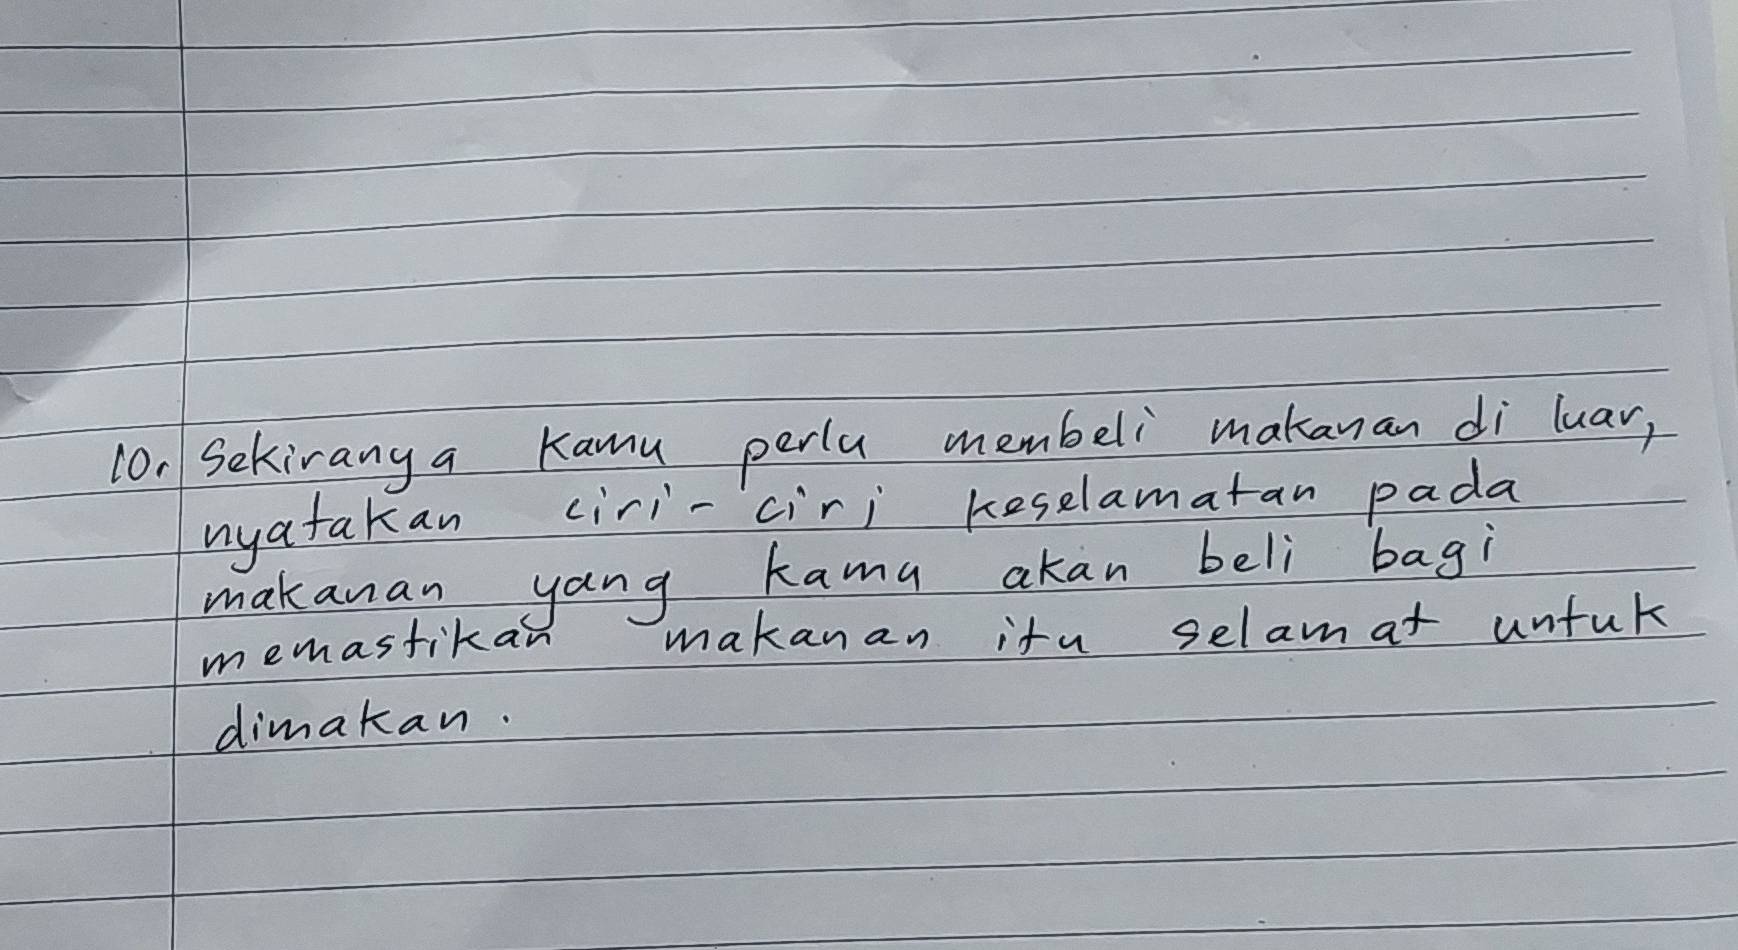 10. Sekiranya kamu perlu membeli makanan di luar,
nyatakan ciri-ciri keselamatan pada
makanan yang kamu akan beli bagi
memastikan makanan itu selamat untuk
dimakan.